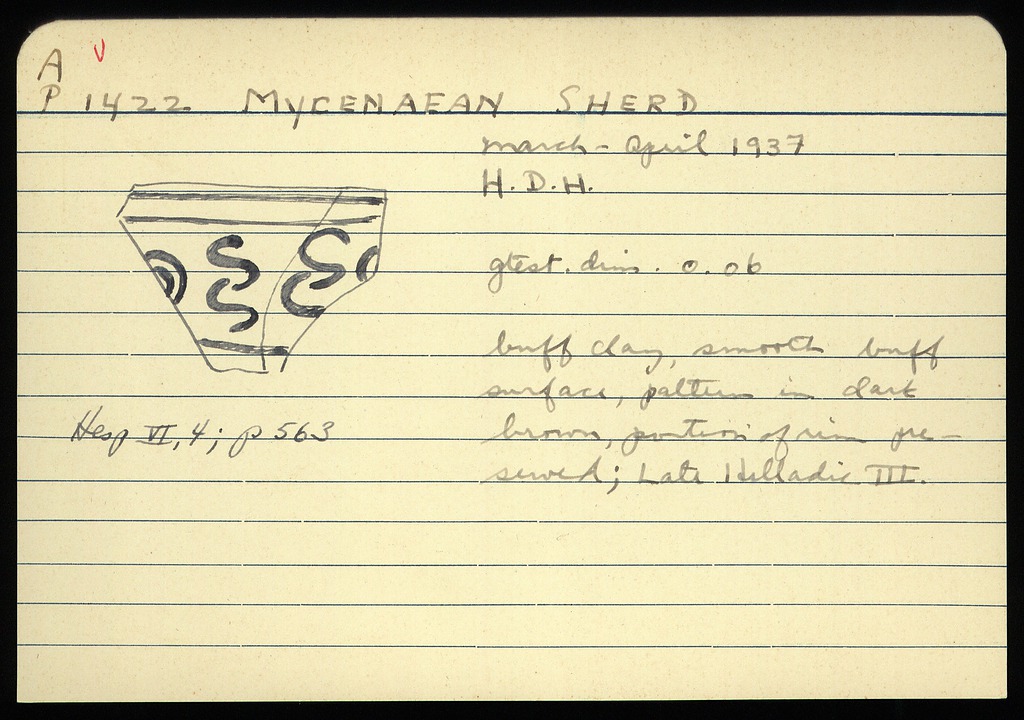 A V
P 1422 MYCENAEAN SHERD
March - April 1937
H.D.H.
gtest. dim. 0.06
buff clay, smooth buff
surface, pattern in dark
brown, portion of rim pre-
served; Late Helladic III.
Hesp VI, 4; p 563